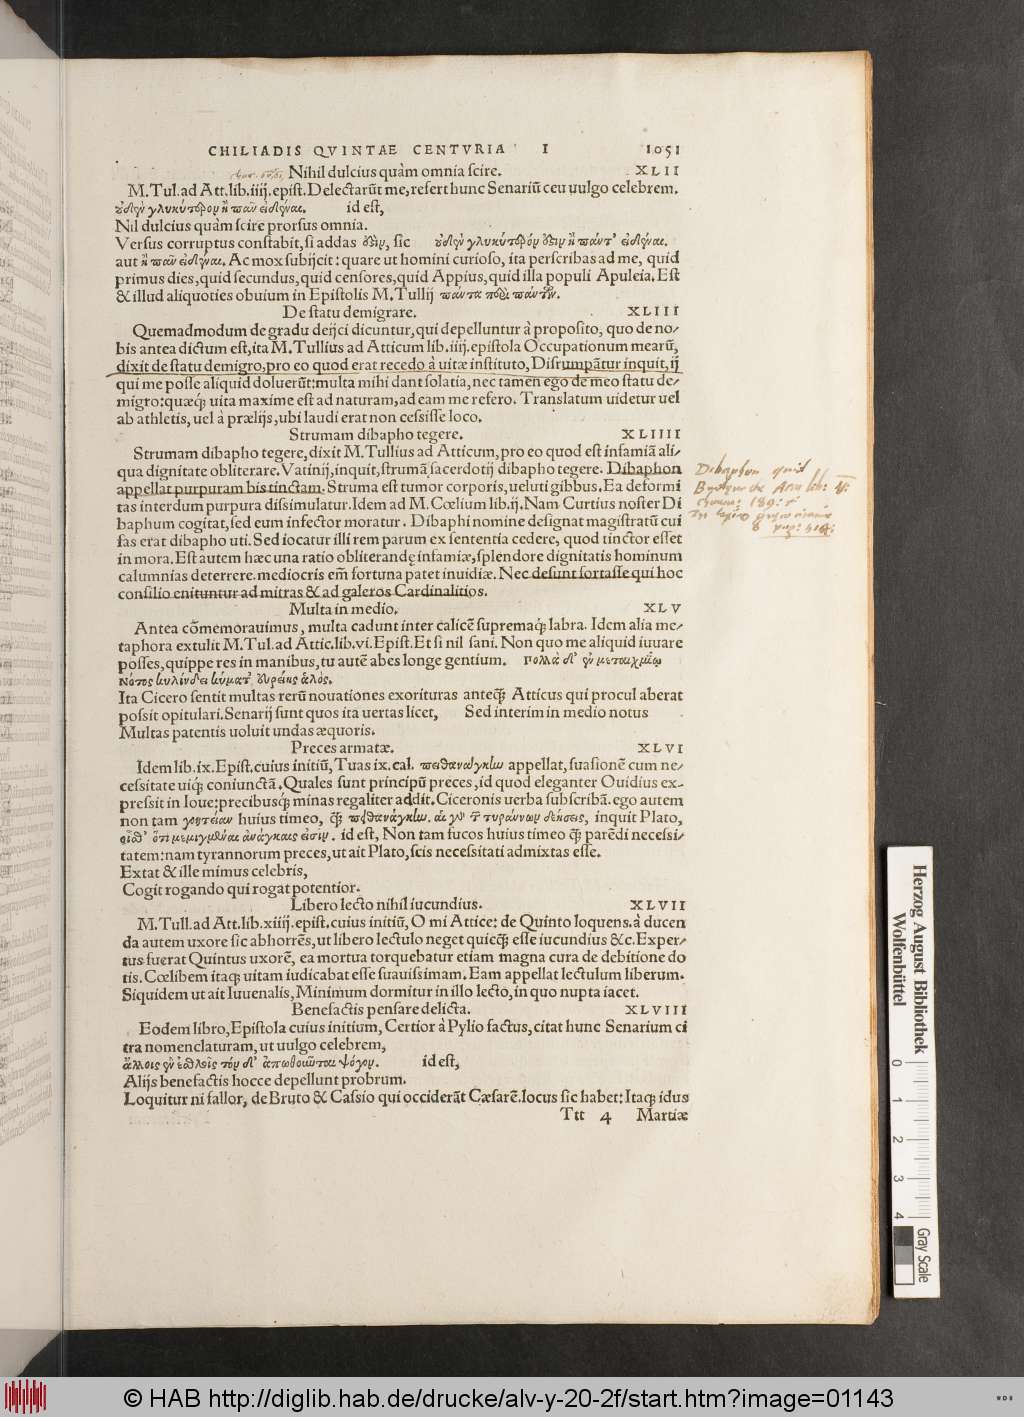 CHILIADIS QVINTAE CENTVRIA I 1051
Nihil dulcius quàm omnia scire. XLII
M. Tul. ad Att. lib. iiij. epist. Delectarūt me, refert hunc Senariū ceu uulgo celebrem.
id est,
Nil dulcius quàm scire prorsus omnia.
Versus corruptus constabit, si addas ὅδιν, sic
aut ἢ παν εἰδέναι. Ac mox subijcit: quare ut homini curioso, ita perscribas ad me, quid
primus dies, quid secundus, quid censores, quid Appius, quid illa populi Apuleia. Est
& illud aliquoties obuium in Epistolis M. Tullij πάντα περὶ πάντων.
De statu demigrare. XLIII
Quemadmodum de gradu deijci dicuntur, qui depelluntur à proposito, quo de no-
bis antea dictum est, ita M. Tullius ad Atticum lib. iiij. epistola Occupationum mearū,
dixit de statu demigro, pro eo quod erat recedo à uitæ instituto, Disrumpātur inquit, ij
qui me posse aliquid doluerūt: multa mihi dant solatia, nec tamen ego de meo statu de-
migro: quæq; uita maxime est ad naturam, ad eam me refero. Translatum uidetur uel
ab athletis, uel à prælijs, ubi laudi erat non cessisse loco.
Strumam dibapho tegere. XLIIII
Strumam dibapho tegere, dixit M. Tullius ad Atticum, pro eo quod est infamiā ali-
qua dignitate obliterare. Vatinij, inquit, strumā sacerdotij dibapho tegere. Dibaphon
appellat purpuram bis tinctam. Struma est tumor corporis, ueluti gibbus. Ea deformi
tas interdum purpura dissimulatur. Idem ad M. Cœlium lib. ij. Nam Curtius noster Di
baphum cogitat, sed eum infector moratur. Dibaphi nomine designat magistratū cui
fas erat dibapho uti. Sed iocatur illi rem parum ex sententia cedere, quod tinctor esset
in mora. Est autem hæc una ratio obliterandę infamiæ, splendore dignitatis hominum
calumnias deterrere. mediocris em̄ fortuna patet inuidiæ. Nec desunt fortasse qui hoc
consilio enituntur ad mitras & ad galeros Cardinalitios.
Dibaphon quid
Multa in medio. XLV
Antea cōmemorauimus, multa cadunt inter calicē supremaq; labra. Idem alia me-
taphora extulit M. Tul. ad Attic. lib. vi. Epist. Et si nil sani. Non quo me aliquid iuuare
posses, quippe res in manibus, tu autē abes longe gentium. πολλὰ δ' ἐν μεταιχμίῳ
Νότος κυλίνδει κύματ' εὐρείης ἁλός.
Ita Cicero sentit multas rerū nouationes exorituras anteq̃ Atticus qui procul aberat
possit opitulari. Senarij sunt quos ita uertas licet, Sed interim in medio notus
Multas patentis uoluit undas æquoris.
Preces armatæ. XLVI
Idem lib. ix. Epist. cuius initiū, Tuas ix. cal. πειθανάγκω appellat, suasionē cum ne-
cessitate uiq; coniunctā. Quales sunt principū preces, id quod eleganter Ouidius ex-
pressit in Ioue: precibusq; minas regaliter addit. Ciceronis uerba subscribā. ego autem
non tam γοητείαν huius timeo, q̃ πειθανάγκω. αἱ γὰρ τ τυράννων δεήσεις, inquit Plato,
οἶσθ' ὅτι μεμιγμέναι ἀνάγκαις εἰσίν. id est, Non tam fucos huius timeo q̃ parēdi necessi-
tatem: nam tyrannorum preces, ut ait Plato, scis necessitati admixtas esse.
Extat & ille mimus celebris,
Cogit rogando qui rogat potentior.
Libero lecto nihil iucundius. XLVII
M. Tull. ad Att. lib. xiiij. epist. cuius initiū, O mi Attice: de Quinto loquens. à ducen
da autem uxore sic abhorrēs, ut libero lectulo neget quicq̃ esse iucundius &c. Exper-
tus fuerat Quintus uxorē, ea mortua torquebatur etiam magna cura de debitione do
tis. Cœlibem itaq; uitam iudicabat esse suauissimam. Eam appellat lectulum liberum.
Siquidem ut ait Iuuenalis, Minimum dormitur in illo lecto, in quo nupta iacet.
Benefactis pensare delicta. XLVIII
Eodem libro, Epistola cuius initium, Certior à Pylio factus, citat hunc Senarium ci
tra nomenclaturam, ut uulgo celebrem,
ἄλλοις ἐν ἐσθλοῖς τόνδ' ἀπωθοῦνται ψόγον. id est,
Alijs benefactis hocce depellunt probrum.
Loquitur ni fallor, de Bruto & Cassio qui occiderāt Cæsarē. locus sic habet: Itaq; idus
Ttt 4 Martiæ
Herzog August Bibliothek
Wolfenbüttel
0 1 2 3 4
Gray Scale
© HAB http://diglib.hab.de/drucke/alv-y-20-2f/start.htm?image=01143